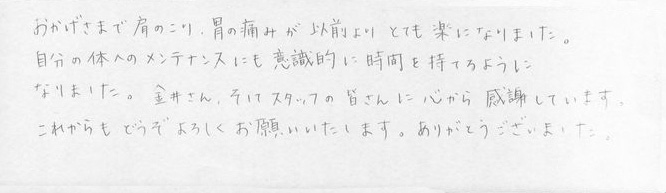 おかげさまで肩のこり、胃の痛みが以前よりとても楽になりました。
自分の体へのメンテナンスにも意識的に時間を持てるように
なりました。金井さん、そしてスタッフの皆さんに心から感謝しています。
これからもどうぞよろしくお願いいたします。ありがとうございました。